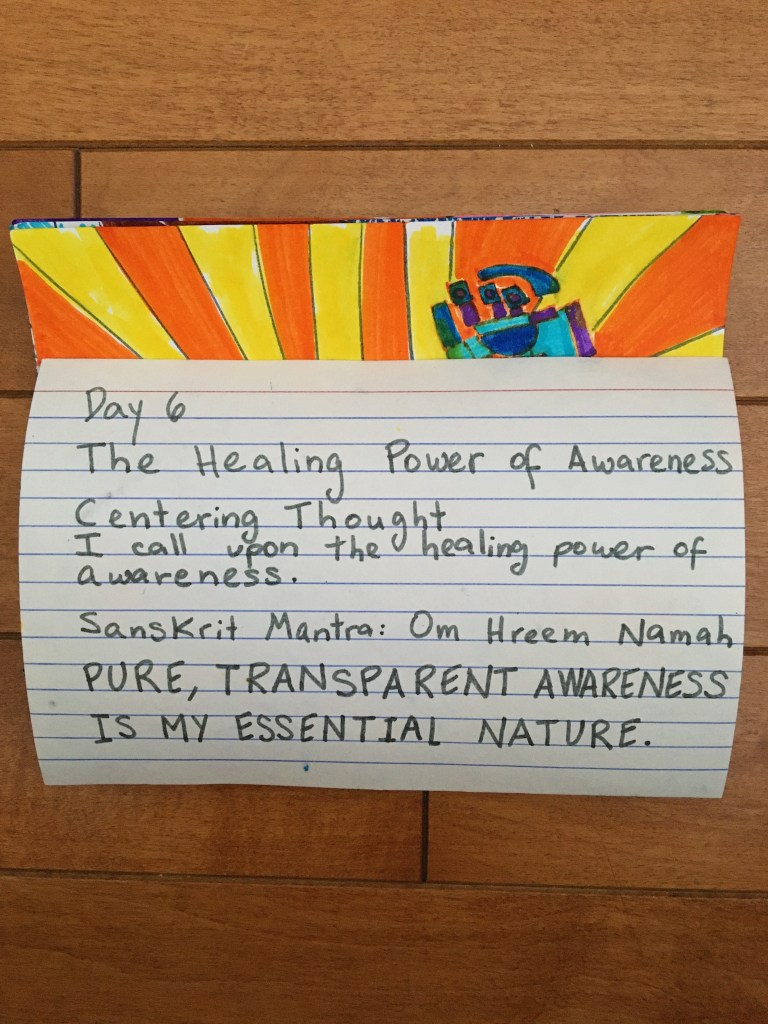 Day 6
The Healing Power of Awareness
Centering Thought
I call upon the healing power of
awareness.
Sanskrit Mantra: Om Hreem Namah
PURE, TRANSPARENT AWARENESS
IS MY ESSENTIAL NATURE.